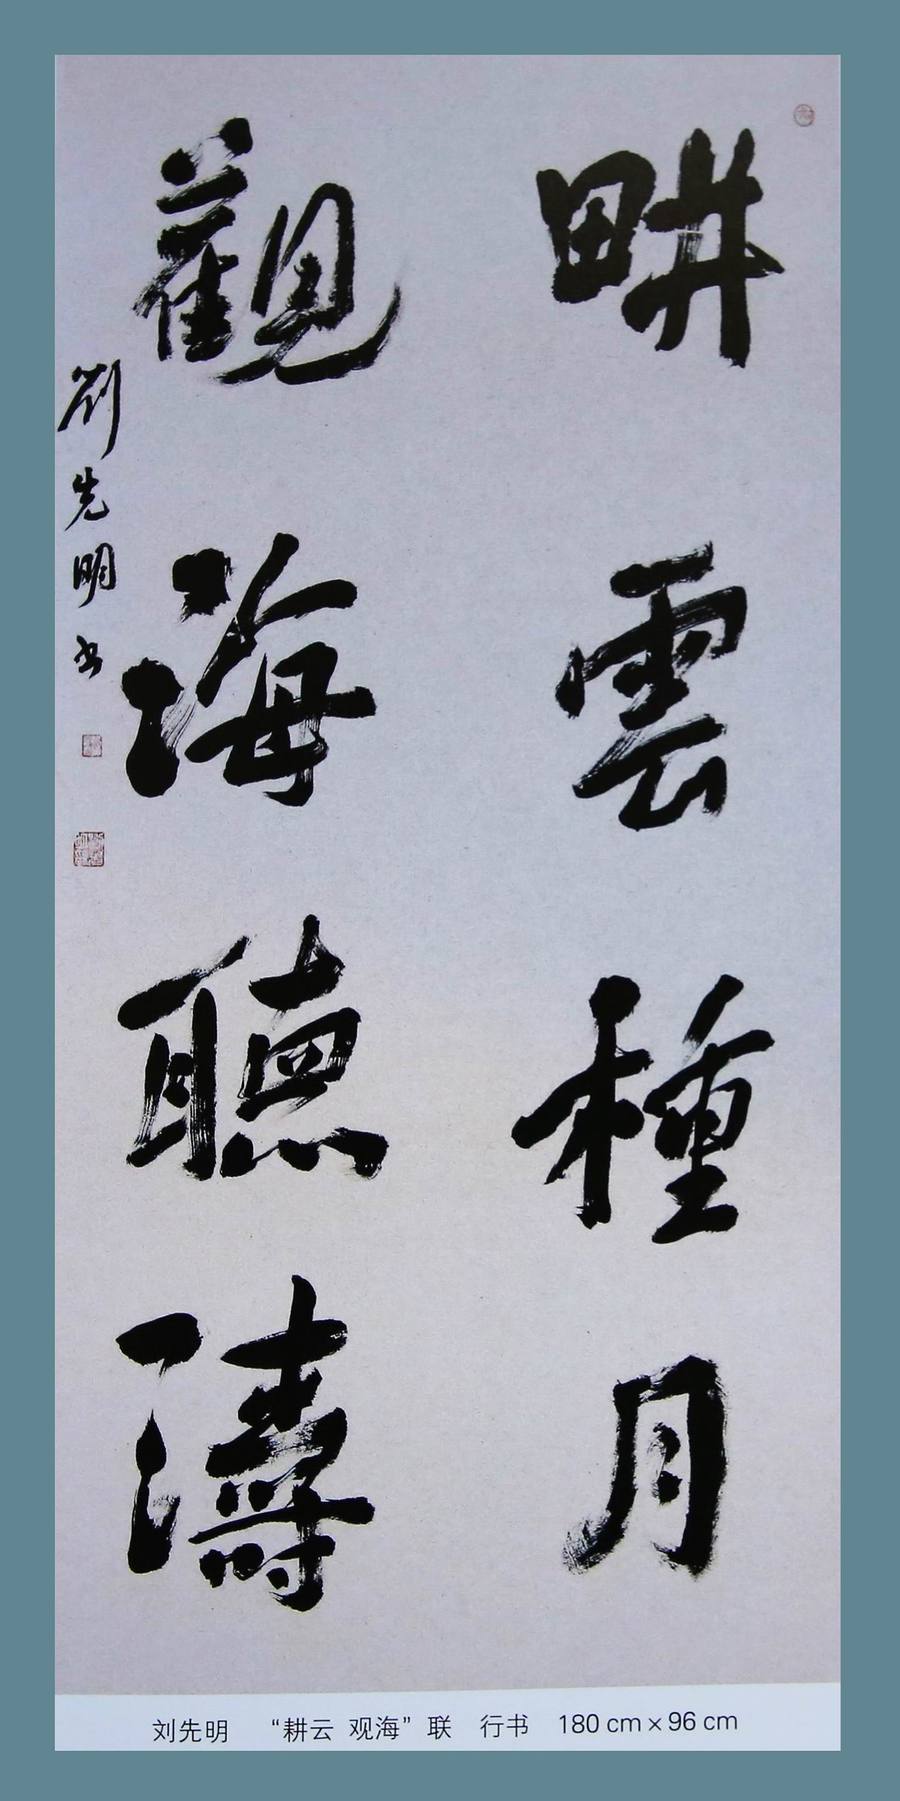 畊雲種月
觀海聽濤
劉先明书
刘先明 “耕云 观海”联 行书 180 cm×96 cm